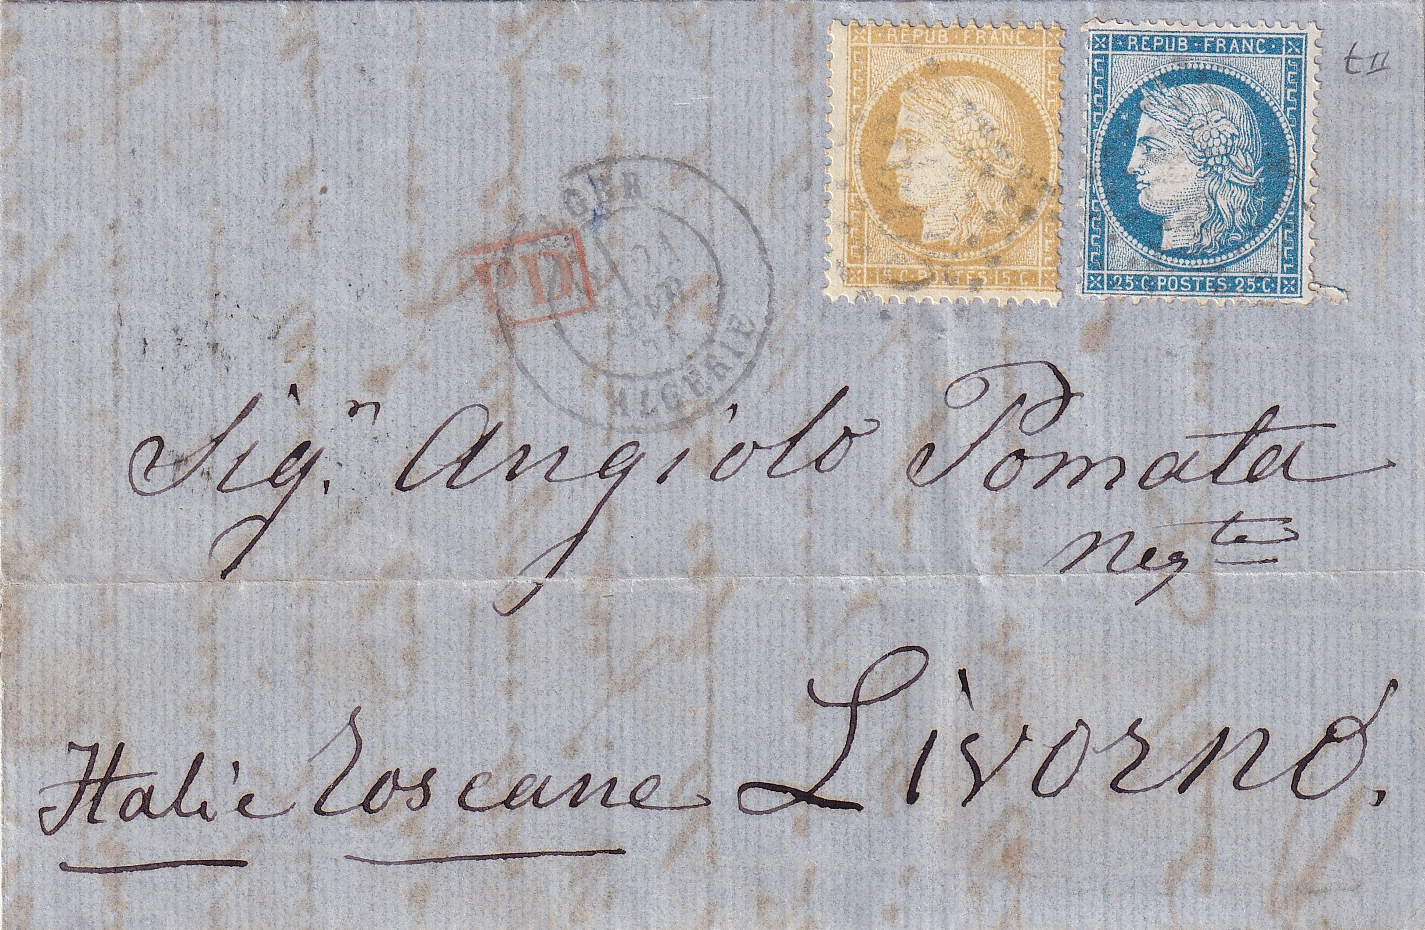 REPUB · FRANC ·
15 C · POSTES · 15 C ·
· REPUB · FRANC ·
· 25 · C · POSTES · 25 · C ·
t II
ALGER
21
ALGÉRIE
PD
Sig.n Angiolo Pomata
Negte
Italie Toscane Livorno,